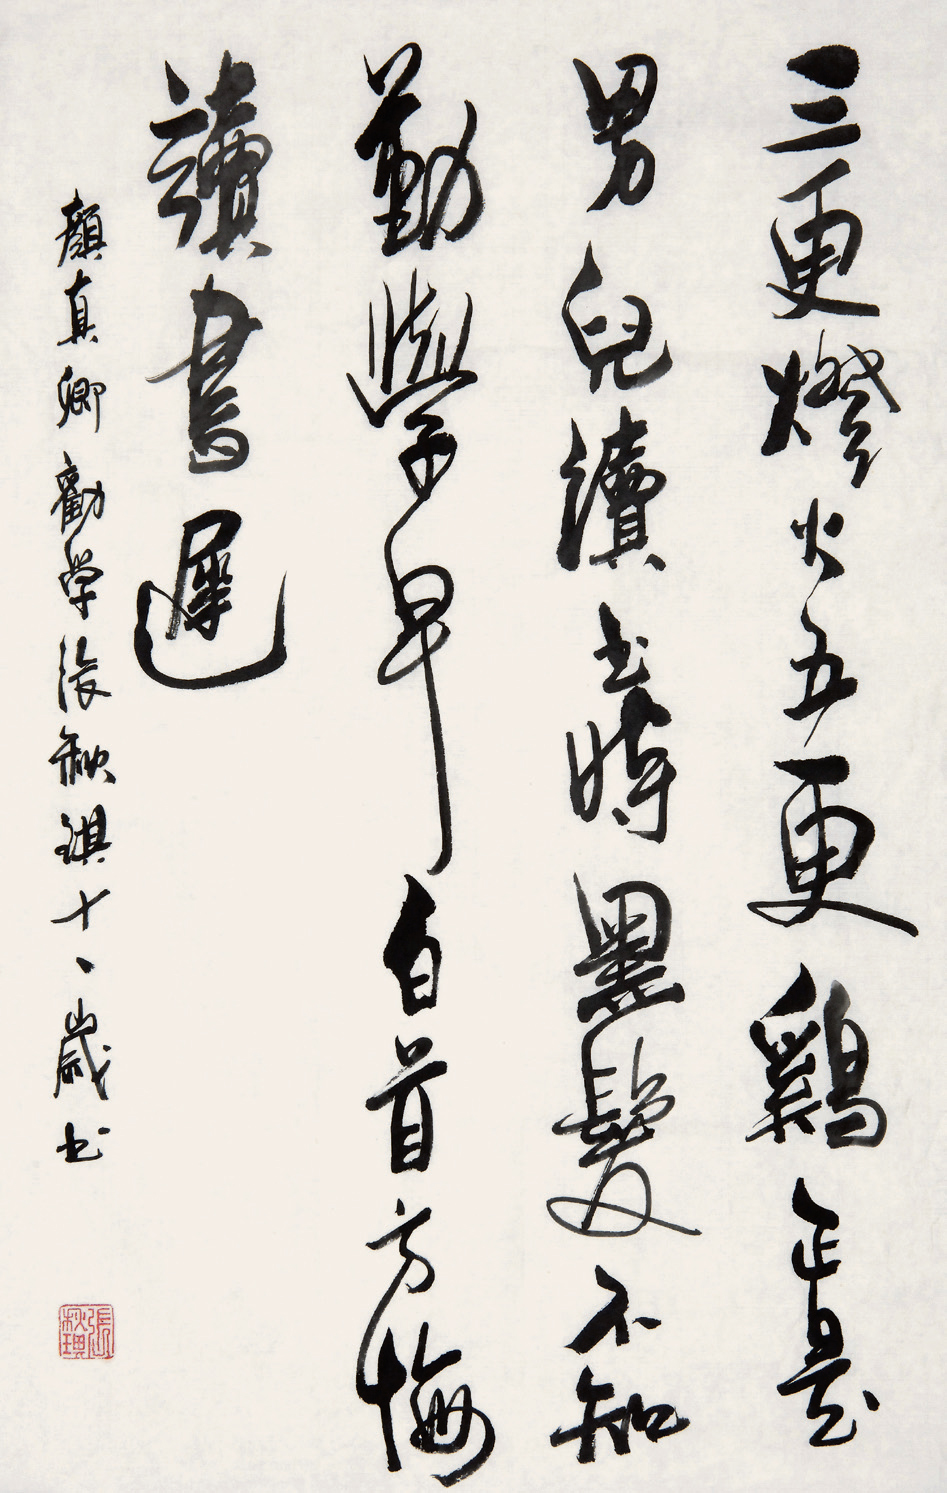 三更燈火五更鷄正是
男兒續书時黑髮不知
勤學早白首方悔
讀書遲
顏真卿勸学張秋琪十八歲书
張秋琪